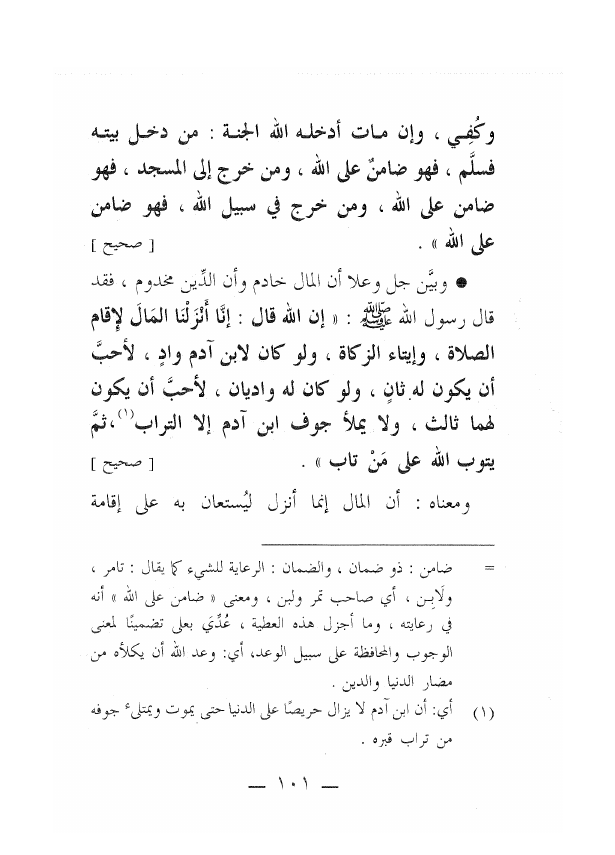 وكُفِي ، وإن مـات أدخلـه الله الجنـة : من دخـل بيتـه
فسلَّم ، فهو ضامنٌ على الله ، ومن خرج إلى المسجد ، فهو
ضامن على الله ، ومن خرج في سبيل الله ، فهو ضامن
على الله » . [ صحيح ]
● وبيَّن جل وعلا أن المال خادم وأن الدِّين مخدوم ، فقد
قال رسول الله ﷺ : « إن الله قال : إنَّا أَنْزَلْنَا المَالَ لإِقام
الصلاة ، وإيتاء الزكاة ، ولو كان لابن آدم وادٍ ، لأحبَّ
أن يكون له ثانٍ ، ولو كان له واديان ، لأحبَّ أن يكون
لهما ثالث ، ولا يملأ جوف ابن آدم إلا التراب(١)، ثمَّ
يتوب الله على مَنْ تاب » . [ صحيح ]
ومعناه : أن المال إنما أنزل ليُستعان به على إقامة
= ضامن : ذو ضمان ، والضمان : الرعاية للشيء كما يقال : تامر ،
ولَابِـن ، أي صاحب تمر ولبن ، ومعنى « ضامن على الله » أنه
في رعايته ، وما أجزل هذه العطية ، عُدِّيَ بعلى تضمينًا لمعنى
الوجوب والمحافظة على سبيل الوعد، أي: وعد الله أن يكلأه من
مضار الدنيا والدين .
(١) أي: أن ابن آدم لا يزال حريصًا على الدنيا حتى يموت ويمتلىء جوفه
من تراب قبره .
— ١٠١ —